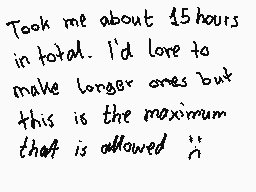 Took me about 15 hours
in total. I'd love to
make longer ones but
this is the maximum
that is allowed :(